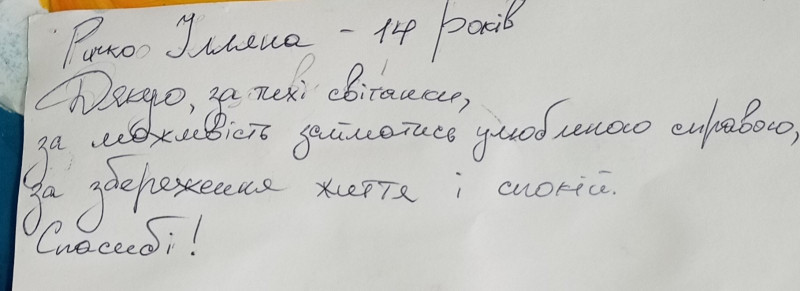 Рачко Ілляна - 14 років
Дякую, за тихі світанки,
за можливість займатись улюбленою справою,
за збереження життя і спокій.
Спасибі!